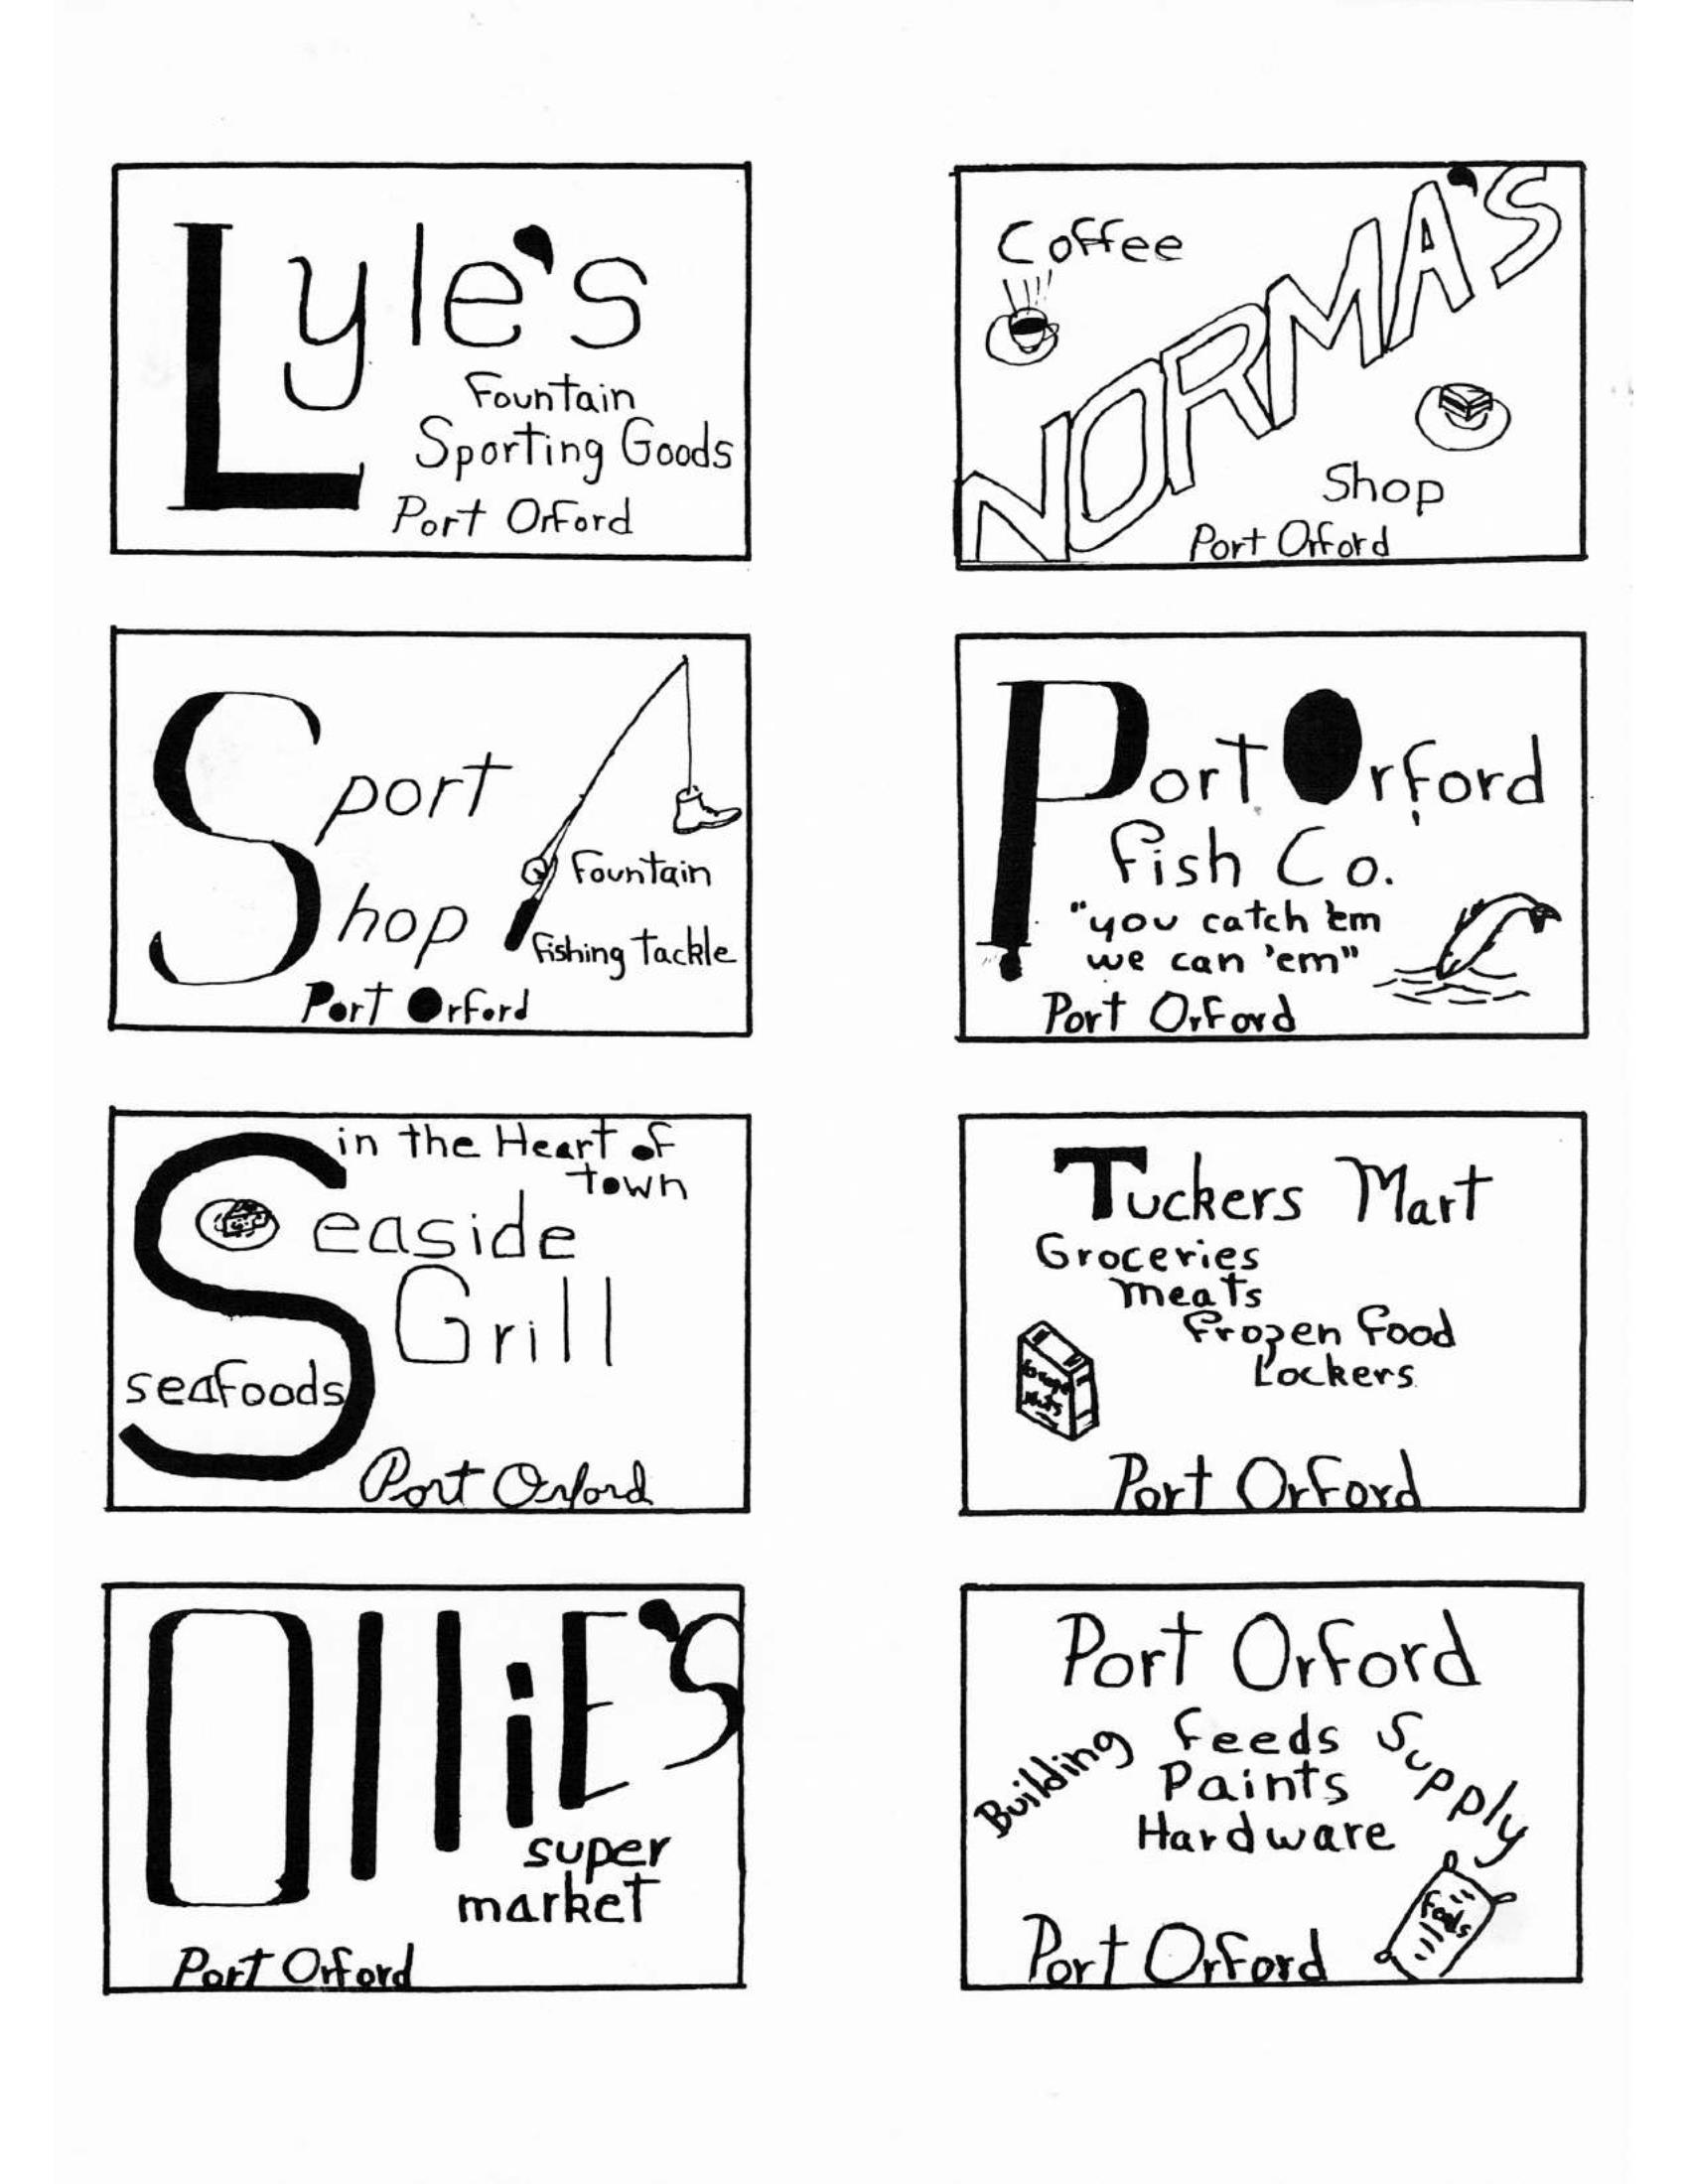 Lyle's
Fountain
Sporting Goods
Port Orford
Coffee
NORMA'S
Shop
Port Orford
Sport
Shop
Fountain
Fishing Tackle
Port Orford
Port Orford
Fish Co.
"you catch 'em
we can 'em"
Port Orford
in the Heart of
town
Seaside
Grill
seafoods
Port Orford
Tuckers Mart
Groceries
meats
Frozen Food
Lockers
Grape
Nuts
Port Orford
OlliE's
super
market
Port Orford
Port Orford
Building Supply
Feeds
Paints
Hardware
Feeds
Port Orford